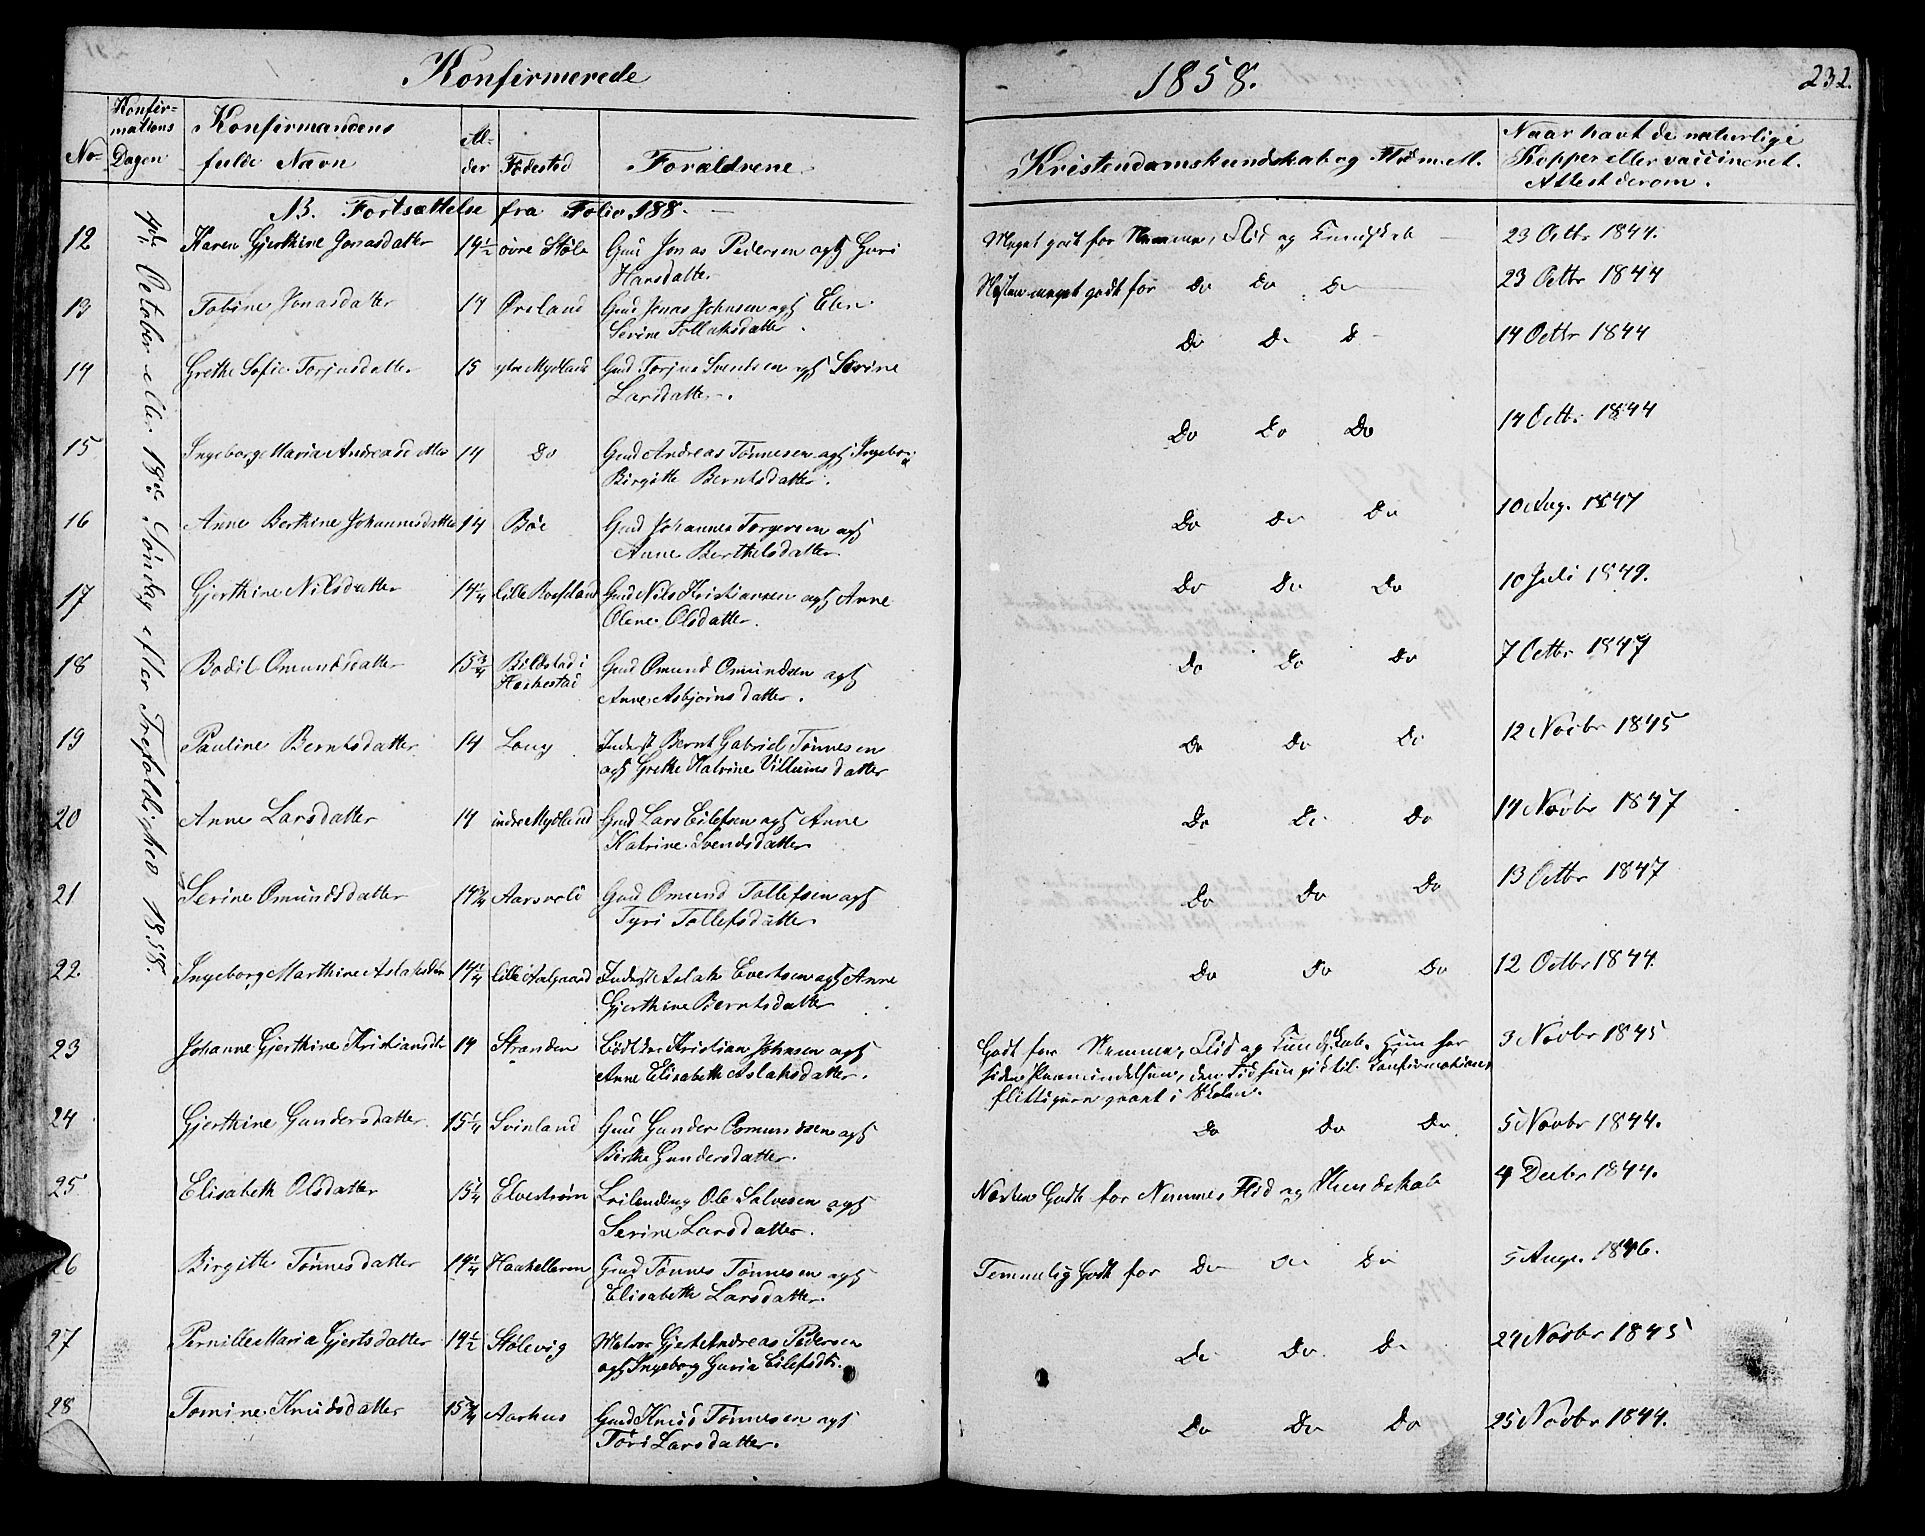 Konfirmerede
1858.
232.
No
Konfir-
mations
Dagen
Konfirmandens
fulde Navn
Al-
der
Födested
Forældrene
Kristendomskundskab og Flid m.M.
Naar havt de naturlige
Kopper eller vaccineret.
Attest derom.
NB. Fortsættelse fra Folio 188.
October eller 18de Söndag efter Trefoldighed 1858.
12 Karen Gjerthine Jonasdatter 14 1/2 övre Stöle Gmd Jonas Pedersen og Guri
Hansdatter
Meget godt for Nemme, Flid og Kundskab 23 Octbr 1844.
13 Tobine Jonasdatter 14 Örsland Gmd Jonas Johnsen og Elen
Serine Tollaksdatter.
Næsten meget godt for Do Do Do 23 Octbr 1844
14 Grethe Sofie Torjusdatter 15 ytre Mydland Gmd Torjus Svendsen og Serine
Larsdatter.
Do Do D 14 Octbr 1844
15 Ingeborg Maria Andreasdatter 14 Do Gmd Andreas Tönnesen og Ingeborg
Birgitte Berntsdatter.
Do Do Do 14 Octbr 1844
16 Anne Berthine Johannesdatter 14 Böe Gmd Johannes Torgersen og
Anne Berthelsdatter.
Do Do Do 10 Aug. 1847
17 Gjerthine Nilsdatter 14 1/4 lille Gmd Nils Kristiansen og Anne
Olene Olsdatter.
Do Do Do 10 Juli 1849.
18 Bodil Omundsdatter 15 3/4 Bilstad i
Heskestad Gmd Omund Omundsen og
Anne Asbjörnsdatter.
Do Do Do 7 Octbr 1847
19 Pauline Berntsdatter 14 Long Inderst Bernt Gabriel Tönnesen
og Grethe Katrine Villumsdatter
Do Do Do 12 Novbr 1845
20 Anne Larsdatter 14 indre Mydland Gmd Lars Eilefsen og Anne
Katrine Svendsdatter
Do Do Do 14 Novbr 1847
21 Serine Omundsdatter 14 3/4 Aarsvold Gmd Omund Tollefsen og
Tyri Tollefsdatter
Do Do Do 13 Octbr 1847
22. Ingeborg Marthine Aslaksdtr 14 1/4 lille Aalgaard Inderst Aslak Evertsen og Anne
Gjerthine Berntsdatter
Do Do Do 12 Octbr 1844.
23 Johanne Gjerthine Kristiansdtr 14 Stranden Bödker Kristian Johnsen og
Anne Elisabeth Aslaksdatter.
Godt for Nemme, Flid og Kundskab. Hun har
siden Præmindelsen, den Tid hun gik til Konfirmationen
flittigen gaaet i Skolen.
3 Novbr 1845
24 Gjerthine Gundersdatter. 15 1/4 Svinland Gmd Gunder Osmundsen og
Birthe Gundersdatter.
Do Do Do 5 Novbr 1844.
25 Elisabeth Olsdatter 15 1/4 Elveström Leilending Ole Salvesen og
Serine Larsdatter.
Næsten Godt for Nemme Flid og Kundskab 4 Decbr 1844.
26 Birgitte Tönnesdatter 14 1/4 Haakelleren Gmd Tönnes Tönnesen og
Elisabeth Larsdatter.
Temmelig Godt for Do Do Do 5 Aug. 1846.
27 Pernille Maria Gjertsdatter 14 1/2 Stölevig Matros Gjert Andreas Pedersen
og Ingeborg Guria Eilefsdtr.
Do Do. Do 24 Novbr 1845
28 Tomine Knudsdatter 15 3/4 Aarhus Gmd Knud Tönnesen og
Töri Larsdatter.
Do Do Do 25 Novbr 1844.